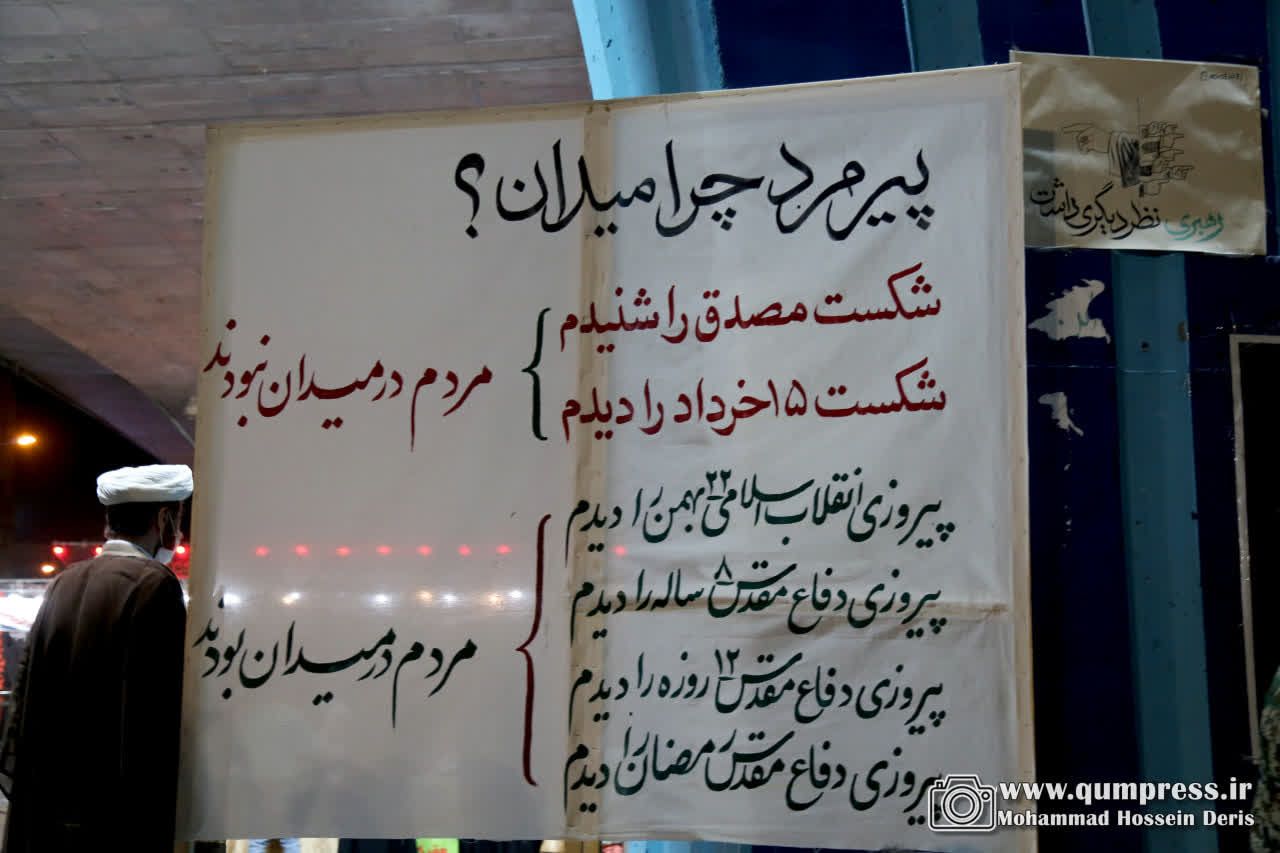 پیرمرد چرا میدان؟
شکست مصدق را شنیدم
شکست ۱۵ خرداد را دیدم
مردم در میدان نبودند
پیروزی انقلاب اسلامی ۲۲ بهمن را دیدم
پیروزی دفاع مقدس ۸ ساله را دیدم
پیروزی دفاع مقدس ۱۲ روزه را دیدم
پیروزی دفاع مقدس رمضان را دیدم
مردم در میدان بودند
رهبری نظر دیگری داشت
www.qumpress.ir
Mohammad Hossein Deris